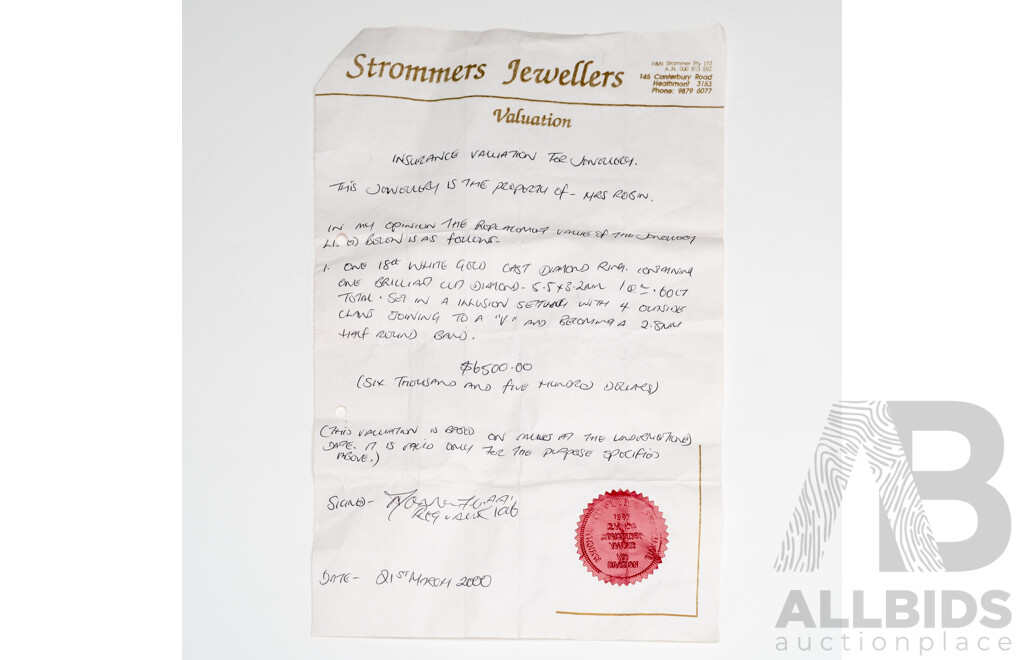 Strommers Jewellers
H&N Strommer Pty Ltd
A.N. 000 813 592
145 Canterbury Road
Heathmont 3153
Phone: 9879 6077
Valuation
INSURANCE VALUATION FOR JEWELLERY.
THIS JEWELLERY IS THE PROPERTY OF - MRS ROBIN.
IN MY OPINION THE REPLACEMENT VALUE OF THE JEWELLERY
LISTED BELOW IS AS FOLLOWS-
1. ONE 18ct WHITE GOLD CAST DIAMOND RING. CONTAINING
ONE BRILLIANT CUT DIAMOND - 5.5 x 3.2MM 1@ .60CT
TOTAL. SET IN A ILLUSION SETTING WITH 4 OUTSIDE
CLAWS JOINING TO A "V" AND BECOMING A 2.8MM
HALF ROUND BAND.
$6500.00
(SIX THOUSAND AND FIVE HUNDRED DOLLARS)
(THIS VALUATION IS BASED ON VALUES AT THE UNDERMENTIONED
DATE. IT IS VALID ONLY FOR THE PURPOSE SPECIFIED
ABOVE.)
SIGNED -
REG VALUER 106
DATE - 21ST MARCH 2000
VALUER
VIC
DIVISION
AB
ALLBIDS
auctionplace